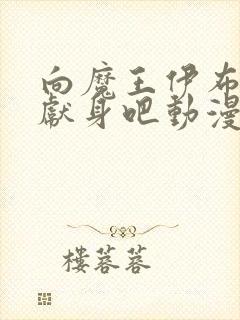 向魔王伊布
獻身吧動漫
樓蓉蓉